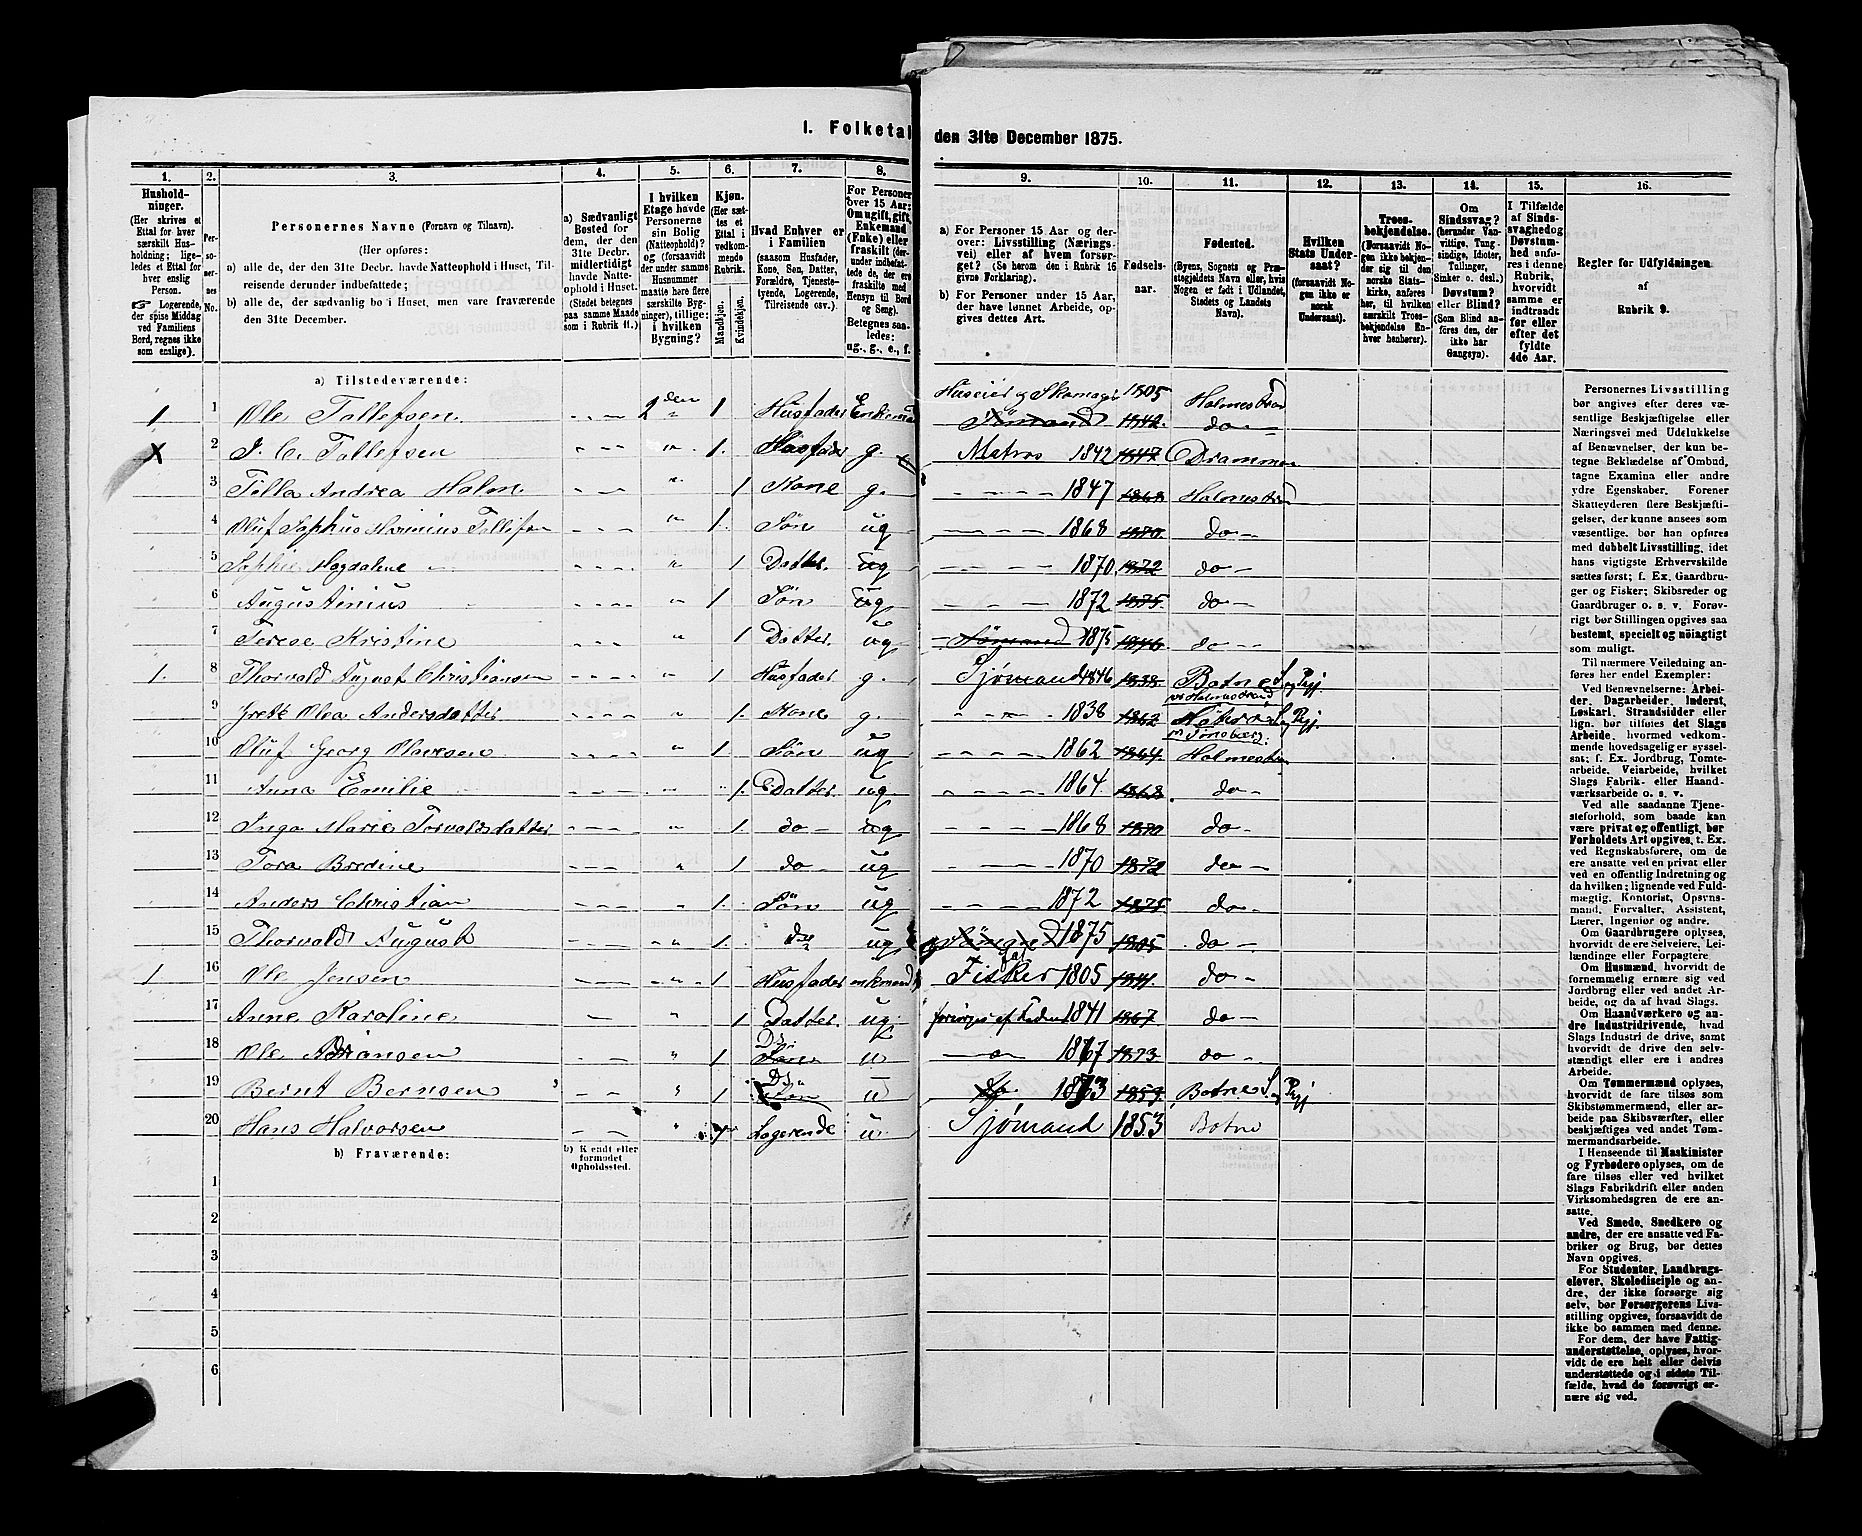 I. Folketal den 31te December 1875.
1. 2. 3. 4. 5. 6. 7. 8. 9. 10. 11. 12. 13. 14. 15. 16.
Hushold-
ninger.
(Her skrives et
Ettal for hver
særskilt Hus-
holdning; lige-
ledes et Ettal for
hver enslig
Person.
☞ Logerende,
der spise Middag
ved Familiens
Bord, regnes ikke
som enslige).
Per-
so-
ner-
nes
No.
Personernes Navne (Fornavn og Tilnavn).
(Her opføres:
a) alle de, der den 31te Decbr. havde Natteophold i Huset, Til-
reisende derunder indbefattede;
b) alle de, der sædvanlig bo i Huset, men vare fraværende
den 31te December.
a) Sædvanligt
Bosted for
dem, der den
31te Decbr.
midlertidigt
havde Natte-
ophold i Huset.
(Stedet betegnes
paa samme Maade
som i Rubrik 11.)
I hvilken
Etage havde
Personerne
sin Bolig
(Natteophold)?
og (forsaavidt
der under samme
Husnummer
maatte høre flere
særskilte Byg-
ninger), tillige:
i hvilken
Bygning?
Kjøn.
(Her sæt-
tes et
Ettal i
vedkom-
mende
Rubrik.)
Mandkjøn.
Kvindekjøn.
Hvad Enhver er
i Familien
(saasom Husfader,
Kone, Søn, Datter,
Forældre, Tjeneste-
tyende, Logerende,
Tilreisende osv.)
For Personer
over 15 Aar:
Om ugift, gift,
Enkemand
(Enke) eller
fraskilt (der-
under indbefat-
tede de, der ere
fraskilte med
Hensyn til Bord
og Seng).
Betegnes saa-
ledes:
ug., g., e., f.
a) For Personer 15 Aar og der-
over: Livsstilling (Nærings-
vei) eller af hvem forsør-
get? (Se herom den i Rubrik 16
givne Forklaring).
b) For Personer under 15 Aar,
der have lønnet Arbeide, op-
gives dettes Art.
Fødsels-
aar.
Fødested.
(Byens, Sognets og Præ-
stegjeldets Navn eller, hvis
Nogen er født i Udlandet,
Stedets og Landets
Navn).
Hvilken
Stats Under-
saat?
(forsaavidt No-
gen ikke er
norsk
Undersaat).
Troes-
bekjendelse.
(Forsaavidt No-
gen ikke bekjen-
der sig til den
norske Stats-
kirke, anføres
her, til hvilket
særskilt Troes-
bekjendelse En-
hver henhører).
Om
Sindssvag?
(herunder Van-
vittige, Tung-
sindige, Idioter,
Tullinger,
Sinker o. desl.)
Døvstum?
eller Blind?
(Som Blind an-
føres den, der
ikke har
Gangsyn).
I Tilfælde
af Sinds-
svaghed og
Døvstum-
hed anføres
i denne
Rubrik,
hvorvidt
samme er
indtraadt
før eller
efter det
fyldte
4de Aar.
Regler for Udfyldningen
af
Rubrik 9.
a) Tilstedeværende:
1 1 Ole Tollefsen 2den 1 Husfader Enkemand Huseier og Skomager 1805 Holmestrand
X 2 J. C. Tollefsen 1. Husfader g. Matros 1842 1847 Drammen
3 Tilla Andrea Holm 1 Kone g. 1847 1868 Holmestrand
4 Oluf Sophus Marinius Tollefsen 1. Søn ug 1868 1870 do
5 Sophie Magdalene 1 Datter. ug 1870 1872 do
6 Augustinius 1 Søn ug 1872 1875 do
7 Terese Kristine 1 Datter ug Sömand 1875 1846 do
1. 8 Thorvald August Christiansen 1 Husfader g. Sjömand 1846 1838 Botne S og Pgj.
ved Holmestrand
9 Grete Olea Andersdatter 1. Kone g. 1838 1862 S og Pgj.
Tönsberg.
10 Oluf Georg 1 Søn ug 1862 1864 Holmestrand
11 Anna Emilie 1. Datter ug 1864 1868 do
12 Inga Marie Torvaldsdatter 1. do ug 1868 1870 do
13 Tora Bredine 1 do ug 1870 1872 do
14 Anders Christian 1. Søn ug 1872 1875 do
15 Thorvald August 1. do ug 1875 1805 do
1 16 Ole Jensen 1 Husfader enkmand Fisker 1805 1841 do
17 Anne Karoline 1 Datter ug forsørges af Faderen 1841 1867 do
18 Ole Adriansen 1 Ds. Søn u 1867 1873 do
19 Bernt Bernsen 1 Ds. Søn u 1873 1853 Botne S og Pgj
20 Hans Halvorsen Logerende u. Sjømand 1853 Botne
b) Fraværende: b) Kjendt eller
formodet
Opholdssted.
1
2
3
4
5
6
Personernes Livsstilling
bør angives efter deres væ-
sentlige Beskjæftigelse eller
Næringsvei med Udelukkelse
af Benævnelser, der kun be-
tegne Beklædelse af Ombud,
tagne Examina eller andre
ydre Egenskaber. Forener
Skatteyderen flere Beskjæfti-
gelser, der kunne ansees som
væsentlige, bør han opføres
med dobbelt Livsstilling, idet
hans vigtigste Erhvervskilde
sættes først; f. Ex. Gaardbru-
ger og Fisker; Skibsreder og
Gaardbruger o. s. v. Forøv-
rigt bør Stillingen opgives saa
bestemt, specielt og nöiagtigt
som muligt.
Til nærmere Veiledning an-
føres her endel Exempler:
Ved Benævnelserne: Arbei-
der, Dagarbeider, Inderst,
Løskarl, Strandsidder eller
lign. bør tilføies det Slags
Arbeide, hvormed vedkom-
mende hovedsagelig er syssel-
sat; f. Ex. Jordbrug, Tomte-
arbeide, Veiarbeide, hvilket
Slags Fabrik- eller Haand-
værksarbeide o. s. v.
Ved alle saadanne Tjene-
steforhold, som baade kan
være privat og offentligt, bør
Forholdets Art opgives, t. Ex.
ved Regnskabsførere, om de
ere ansatte ved en privat eller
ved en offentlig Indretning og
da hvilken; lignende ved Fuld-
mægtig, Kontorist, Opsyns-
mand, Forvalter, Assistent,
Lærer, Ingeniør og andre.
Om Gaardbrugere oplyses,
hvorvidt de ere Selveiere, Lei-
lændinge eller Forpagtere.
Om Husmænd, hvorvidt de
fornemmelig ernære sig ved
Jordbrug eller ved andet Ar-
beide, og da af hvad Slags.
Om Haandværkere og an-
dre Industridrivende, hvad
Slags Industri de drive, samt
hvorvidt de drive den selv-
stændigt eller ere i andres
Arbeide.
Om Tømmermænd oplyses,
hvorvidt de fare tilsøs som
Skibstømmermænd, eller ar-
beide paa Skibsværfter, eller
beskjæftiges ved andet Tøm-
mermandsarbeide.
I Henseende til Maskinister
og Fyrbødere oplyses, om de
fare tilsøs eller ved hvilket
Slags Fabrikdrift eller anden
Virksomhedsgren de ere an-
satte.
Ved Smede, Snedkere og
andre, der ere ansatte ved Fa-
briker og Brug, bør dettes
Navn opgives.
For Studenter, Landbrugs-
elever, Skoledisciple og an-
dre, der ikke forsørge sig
selv, bør Forsørgerens Livs-
stilling opgives, forsaavidt de
ikke bo sammen med denne.
For dem, der have Fattig-
understøttelse, oplyses, hvor-
vidt de ere helt eller delvis
understøttede og i sidste Til-
fælde, hvad de forøvrigt er-
nære sig ved.